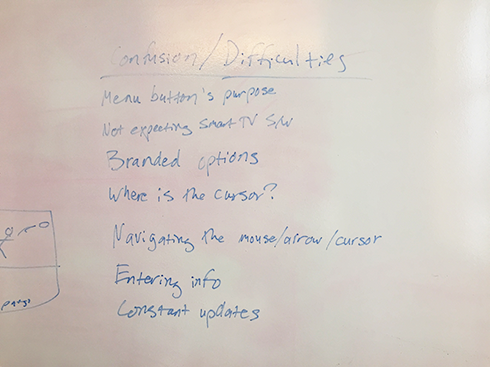 Confusion/Difficulties
Menu button's purpose
Not expecting Smart TV S/W
Branded options
Where is the cursor?
Navigating the mouse/arrow/cursor
Entering info
Constant updates